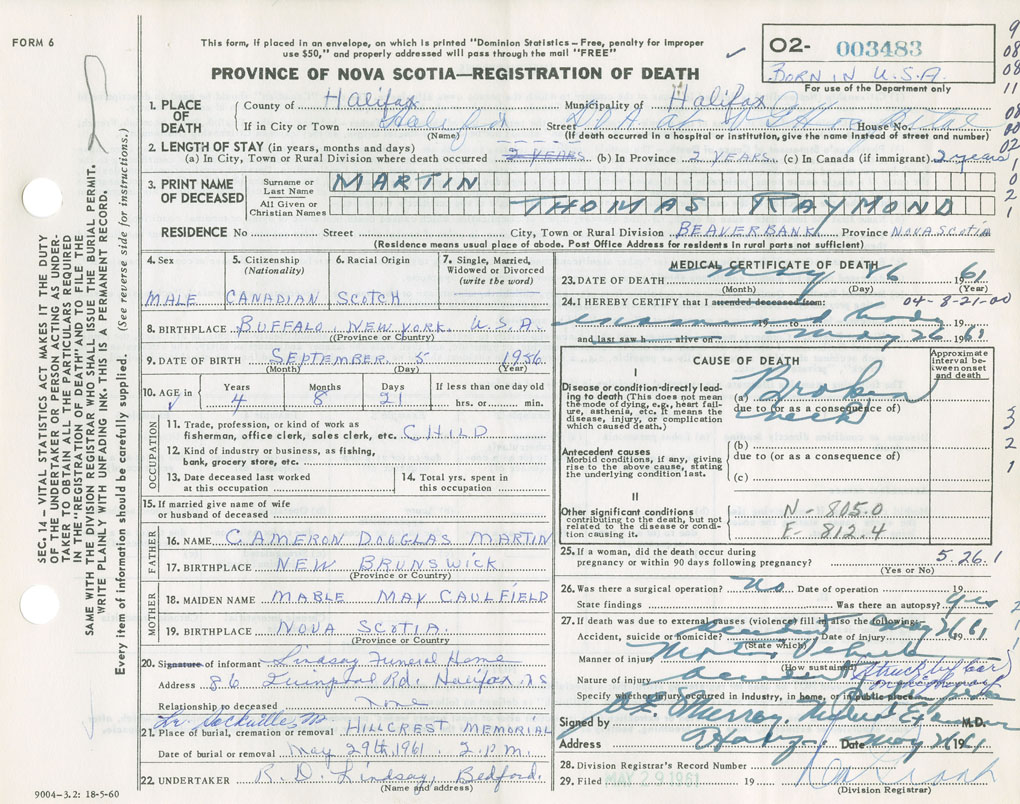 FORM 6
This form, if placed in an envelope, on which is printed "Dominion Statistics – Free, penalty for improper
use $50," and properly addressed will pass through the mail "FREE"
PROVINCE OF NOVA SCOTIA—REGISTRATION OF DEATH
O2- 003483
BORN IN U.S.A.
For use of the Department only
1. PLACE OF DEATH
County of Halifax Municipality of Halifax
If in City or Town Halifax Street D O A at House No.
(Name) (If death occurred in a hospital or institution, give the name instead of street and number)
2. LENGTH OF STAY (in years, months and days)
(a) In City, Town or Rural Division where death occurred 2 YEARS (b) In Province 2 YEARS (c) In Canada (if immigrant) 2 years
3. PRINT NAME OF DECEASED
Surname or Last Name MARTIN
All Given or Christian Names THOMAS RAYMOND
RESIDENCE No Street City, Town or Rural Division BEAVERBANK Province NOVA SCOTIA
(Residence means usual place of abode. Post Office Address for residents in rural parts not sufficient)
4. Sex
MALE
5. Citizenship (Nationality)
CANADIAN
6. Racial Origin
SCOTCH
7. Single, Married, Widowed or Divorced (write the word)
8. BIRTHPLACE BUFFALO, NEW YORK. U.S.A.
(Province or Country)
9. DATE OF BIRTH SEPTEMBER 5 1956
(Month) (Day) (Year)
10. AGE in Years 4 Months 8 Days 21 If less than one day old hrs. or min.
OCCUPATION
11. Trade, profession, or kind of work as
fisherman, office clerk, sales clerk, etc. CHILD
12. Kind of industry or business, as fishing,
bank, grocery store, etc.
13. Date deceased last worked
at this occupation
14. Total yrs. spent in
this occupation
15. If married give name of wife
or husband of deceased
FATHER
16. NAME CAMERON DOUGLAS MARTIN
17. BIRTHPLACE NEW BRUNSWICK
(Province or Country)
MOTHER
18. MAIDEN NAME MABLE MAY CAULFIELD
19. BIRTHPLACE NOVA SCOTIA
(Province or Country)
20. Signature of informant Lindsay Funeral Home
Address 86 Quinpool Rd. Halifax NS
Relationship to deceased none
21. Place of burial, cremation or removal HILLCREST MEMORIAL
Date of burial or removal May 29th, 1961. 2 P.M.
22. UNDERTAKER R. D. Lindsay, Bedford.
(Name and address)
9004-3.2: 18-5-60
MEDICAL CERTIFICATE OF DEATH
23. DATE OF DEATH May 26 1961
(Month) (Day) (Year)
24. I HEREBY CERTIFY that I attended deceased from: 04-8-21-00
examined body 19 to 19
and last saw h alive on May 26 1961
CAUSE OF DEATH
Approximate interval between onset and death
I
Disease or condition directly leading to death (This does not mean the mode of dying, e.g., heart failure, asthenia, etc. It means the disease, injury, or complication which caused death.)
(a) Broken neck
due to (or as a consequence of)
Antecedent causes
Morbid conditions, if any, giving rise to the above cause, stating the underlying condition last.
(b)
due to (or as a consequence of)
(c)
II
Other significant conditions
contributing to the death, but not related to the disease or condition causing it.
N-805.0
E-812.4
25. If a woman, did the death occur during
pregnancy or within 90 days following pregnancy? 5.26.1
(Yes or No)
26. Was there a surgical operation? no Date of operation 19
State findings Was there an autopsy? yes
27. If death was due to external causes (violence) fill in also the following:
Accident, suicide or homicide? accident Date of injury May 26 61
(State which)
Manner of injury Motor Vehicle
(How sustained)
Nature of injury accident (struck by car
Specify whether injury occurred in industry, in home, or in public place
Signed by Murray, Medical Examiner M.D.
Address Date May 26 1961
28. Division Registrar's Record Number
29. Filed MAY 29 1961
(Division Registrar)
SEC. 14 – VITAL STATISTICS ACT MAKES IT THE DUTY
OF THE UNDERTAKER OR PERSON ACTING AS UNDER-
TAKER TO OBTAIN ALL THE PARTICULARS REQUIRED
IN THE "REGISTRATION OF DEATH" AND TO FILE THE
SAME WITH THE DIVISION REGISTRAR WHO SHALL ISSUE THE BURIAL PERMIT.
WRITE PLAINLY WITH UNFADING INK. THIS IS A PERMANENT RECORD.
Every item of information should be carefully supplied. (See reverse side for instructions.)